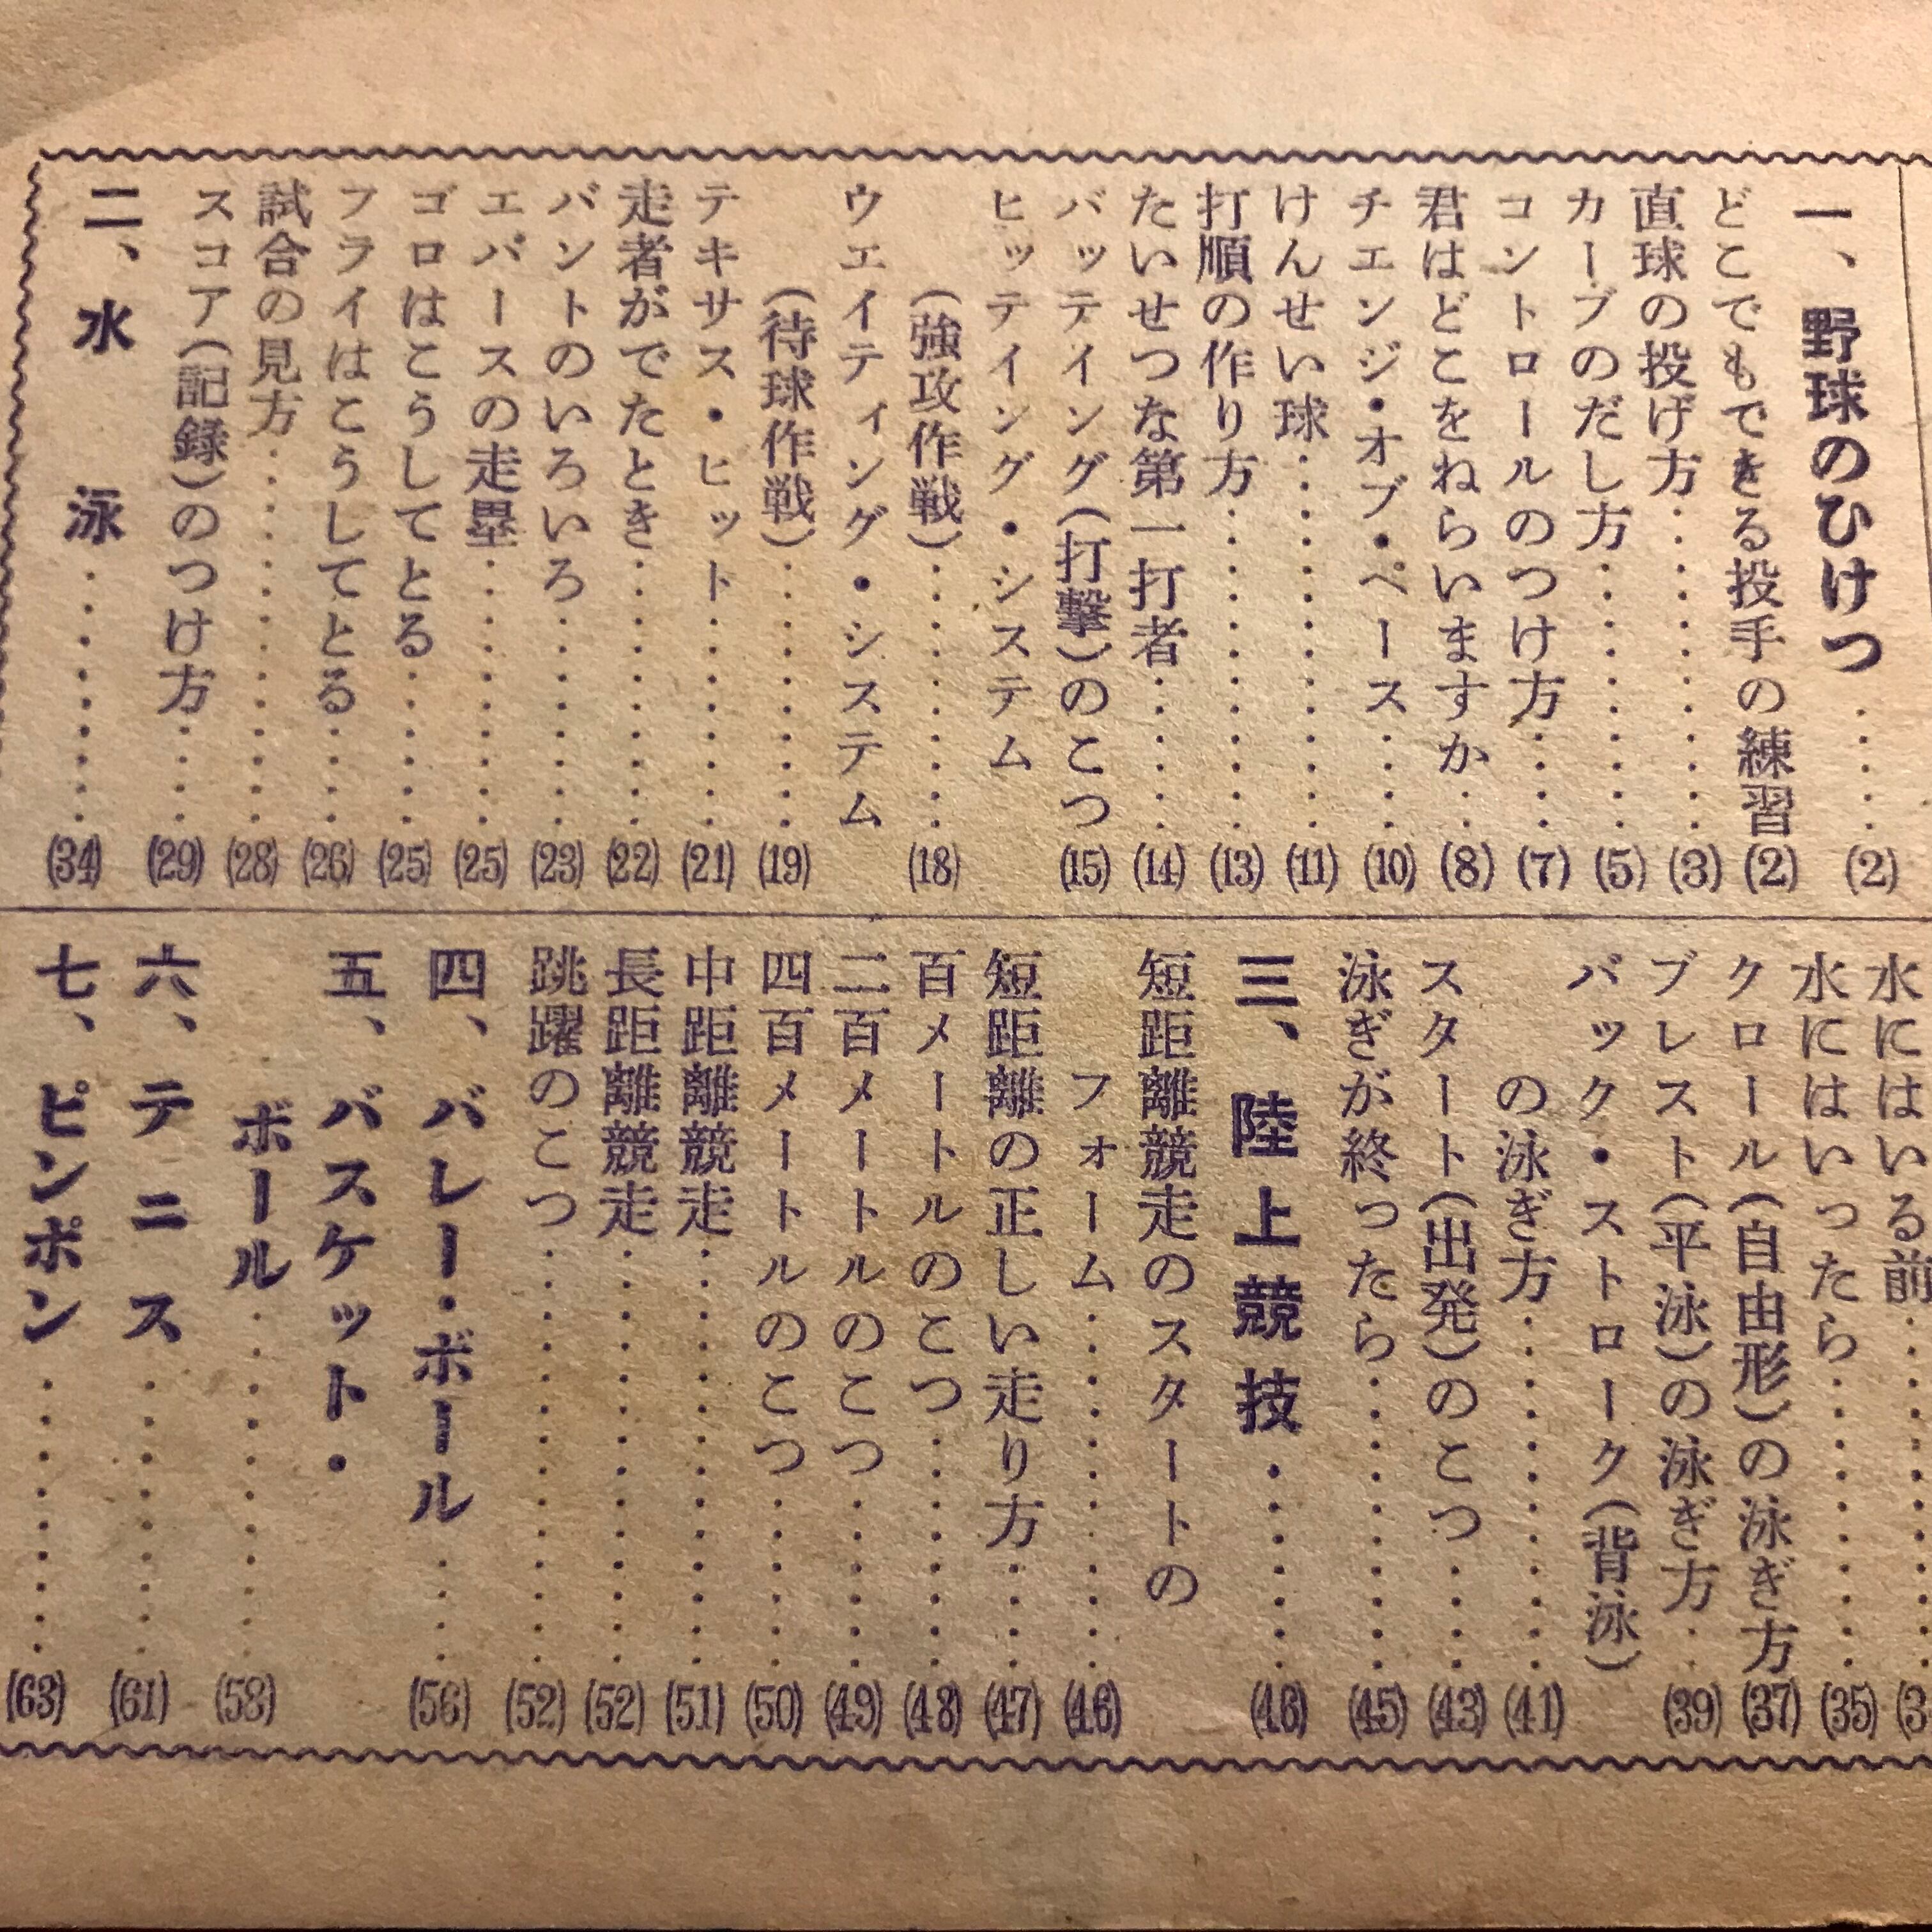 一、野球のひけつ…………(2)
どこでもできる投手の練習(2)
直球の投げ方…………(3)
カーブのだし方…………(5)
コントロールのつけ方…………(7)
君はどこをねらいますか…………(8)
チエンジ・オブ・ペース…………(10)
けんせい球…………(11)
打順の作り方…………(13)
たいせつな第一打者…………(14)
バッテイング(打撃)のこつ(15)
ヒッテイング・システム
(強攻作戦)…………(18)
ウエイティング・システム
(待球作戦)…………(19)
テキサス・ヒット…………(21)
走者がでたとき…………(22)
バントのいろいろ…………(23)
エバースの走塁…………(25)
ゴロはこうしてとる…………(25)
フライはこうしてとる…………(26)
試合の見方…………(28)
スコア(記録)のつけ方…………(29)
二、水泳…………(34)
水にはいる前…………
水にはいったら…………(35)
クロール(自由形)の泳ぎ方(37)
ブレスト(平泳)の泳ぎ方…(39)
バック・ストローク(背泳)
の泳ぎ方…………(41)
スタート(出発)のこつ…………(43)
泳ぎが終ったら…………(45)
三、陸上競技…………(46)
短距離競走のスタートの
フォーム…………(46)
短距離の正しい走り方…………(47)
百メートルのこつ…………(48)
二百メートルのこつ…………(49)
四百メートルのこつ…………(50)
中距離競走…………(51)
長距離競走…………(52)
跳躍のこつ…………(52)
四、バレー・ボール…………(56)
五、バスケット・
ボール…………(58)
六、テニス…………(61)
七、ピンポン…………(63)